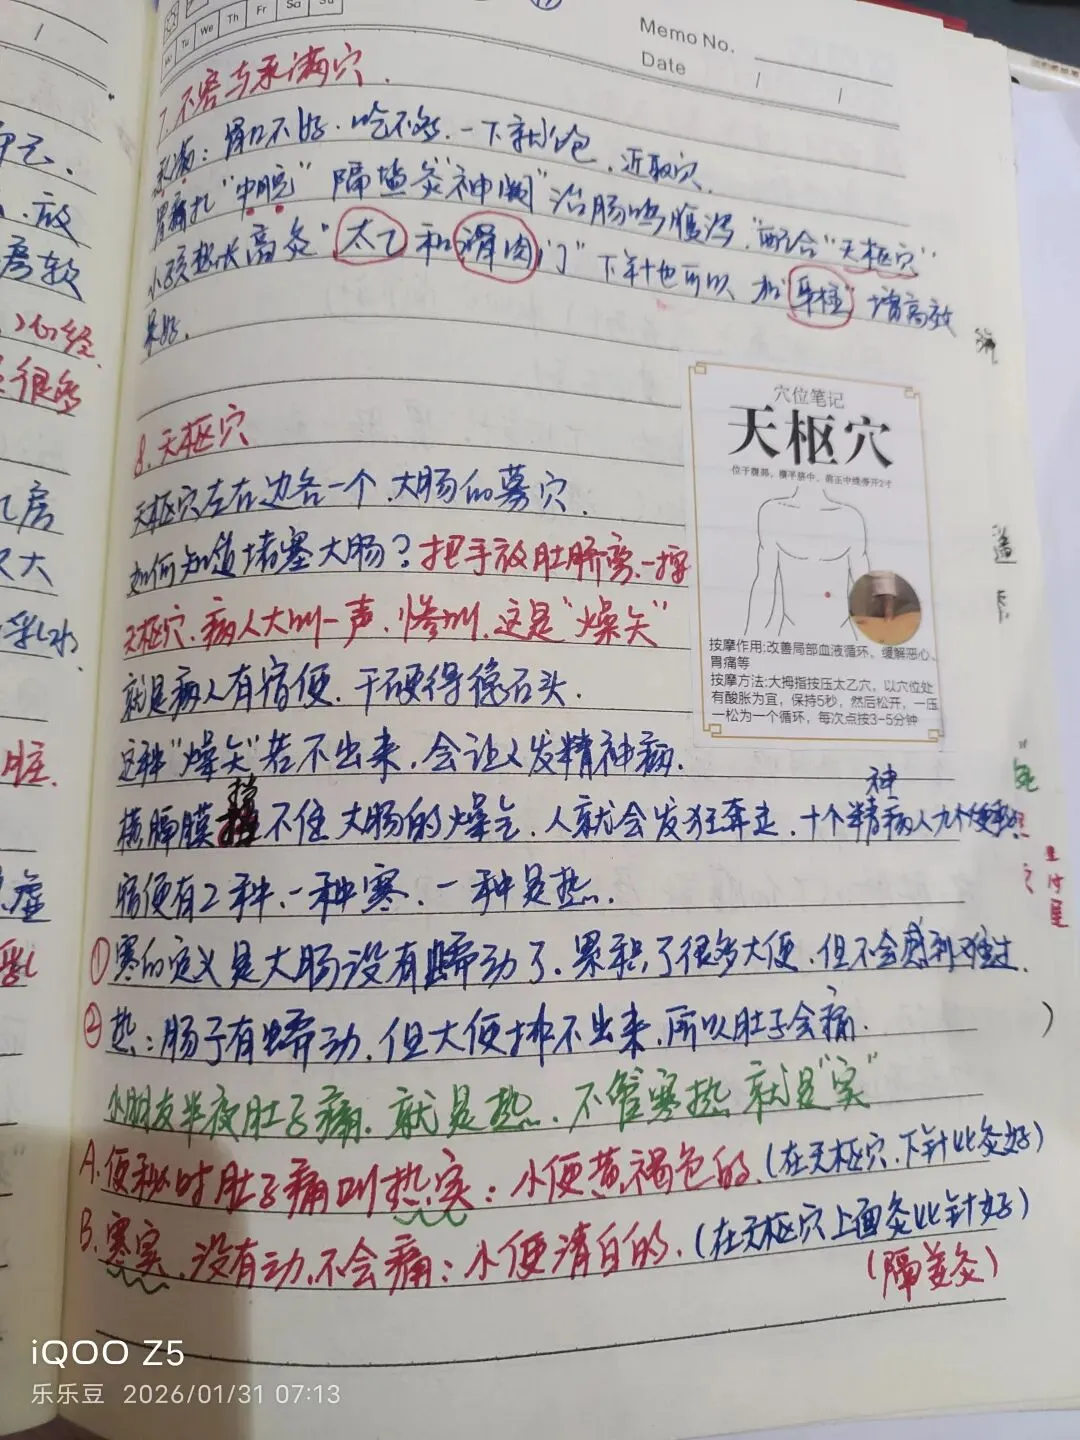 Tu We Th Fr Sa Su
Memo No.
Date / /
7. 不容与承满穴.
承满：胃口不好.吃不够.一下就饱.近取穴.
胃痛扎“中脘”隔盐灸“神阙”治肠鸣腹泻.配合“天枢穴”
小孩想长高灸“太乙和滑肉门”下针也可以 加“身柱”增高效
果好.
8.天枢穴
天枢穴左右边各一个.大肠的募穴.
如何知道堵塞大肠？把手放肚脐旁.一按
天枢穴.病人大叫一声.惨叫.这是“燥矢”
就是病人有宿便.干硬得像石头.
这种“燥矢”若不出来.会让人发精神病.
横膈膜挡不住大肠的燥气.人就会发狂奔走.十个精神病人九个便秘
宿便有2种.一种寒.一种是热.
①寒的定义是大肠没有蠕动了.累积了很多大便.但不会感到难过.
②热：肠子有蠕动.但大便排不出来.所以肚子会痛.
小朋友半夜肚子痛.就是热.不管寒热 就是“实”
A.便秘时肚子痛叫热实：小便黄褐色的.(在天枢穴.下针比灸好)
B.寒实.没有动.不会痛：小便清白的.(在天枢穴上面灸比针好)
(隔姜灸)
穴位笔记
天枢穴
位于腹部，横平脐中，前正中线旁开2寸
按摩作用:改善局部血液循环、缓解恶心、
胃痛等
按摩方法:大拇指按压太乙穴，以穴位处
有酸胀为宜，保持5秒，然后松开，一压
一松为一个循环，每次点按3-5分钟
元.
.放
房较
心经.
很多
房
大
乳水
脏.
虚
乳
iQOO Z5
乐乐豆 2026/01/31 07:13